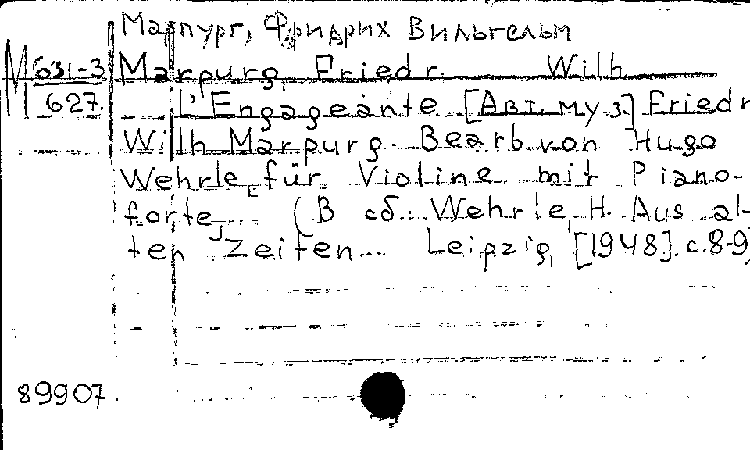 Марпург, Фридрих Вильгельм
М 631-3 Marpurg, Friedr. Wilh.
627 L'Engageante [Авт. муз.] Friedr
Wilh Marpurg. Bearb. von Hugo
Wehrle für Violine mit Piano-
forte... (В сб. Wehrle, H. Aus al-
ten Zeiten... Leipzig, [1948]. с. 8-9)
89907.